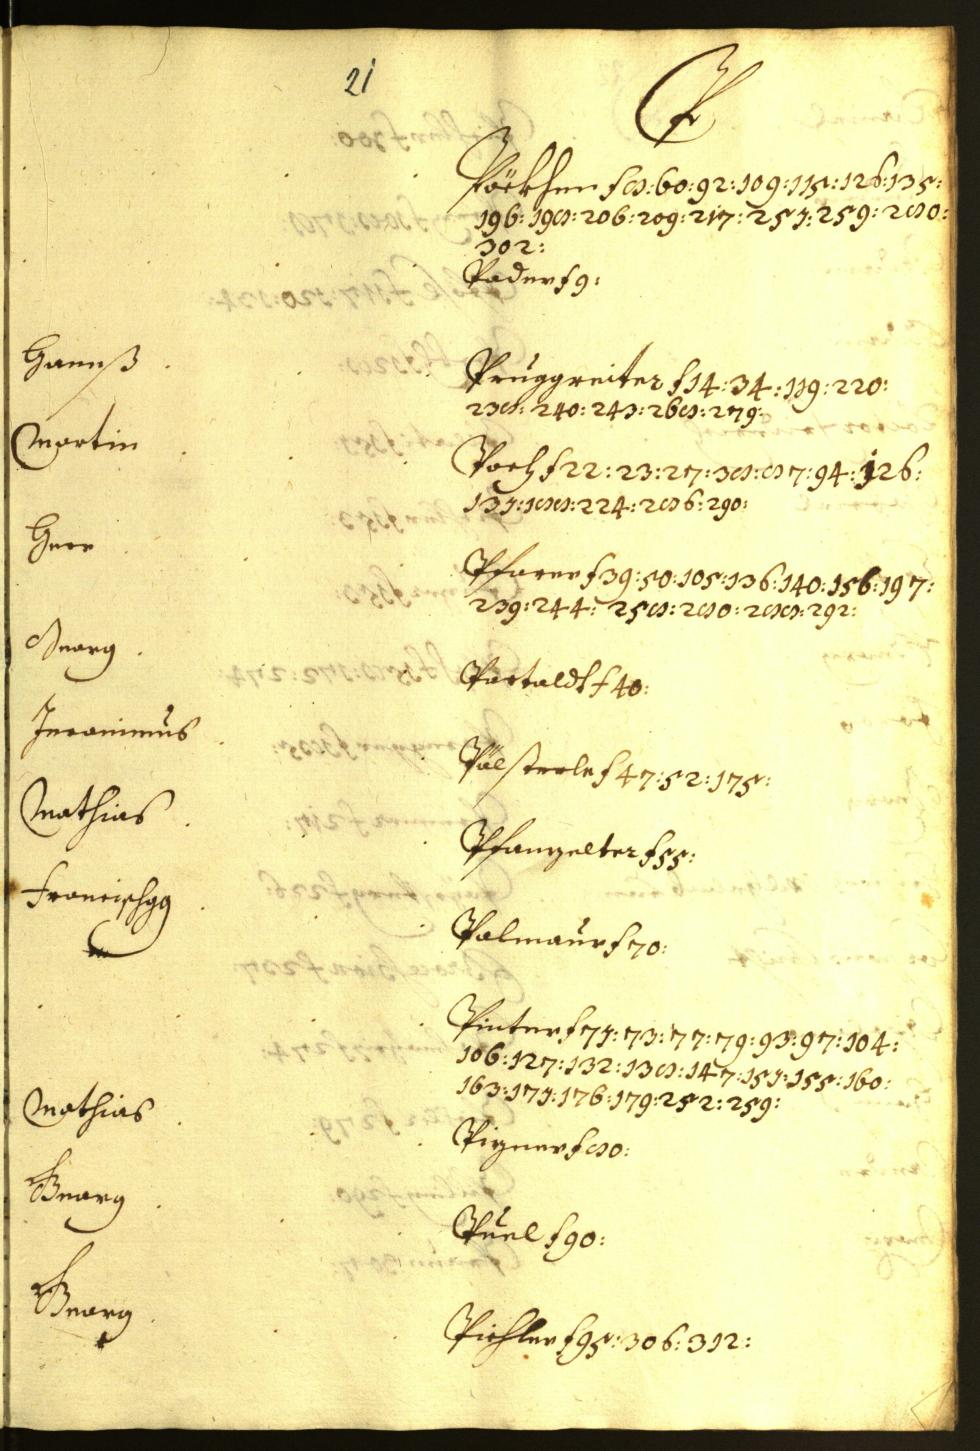 21
P
Pöckhen f 8: 60: 92: 109: 115: 128: 135:
196: 198: 206: 209: 217: 251: 259: 280:
302:
Pader f 9:
Hannß Pruggreiter f 14: 34: 119: 220:
238: 240: 243: 268: 279:
Martin Poch f 22: 23: 27: 38: 87: 94: 126:
131: 188: 224: 286: 290:
Herr Pfarer f 39: 50: 105: 136: 140: 156: 197:
239: 244: 258: 280: 288: 292:
Georg Partaldt f 40:
Jeronimus Pölsterle f 47: 52: 175:
Mathias Pfanzelter f 55:
Francischgg Palmaur f 70:
Pinter f 71: 73: 77: 79: 93: 97: 104:
106: 127: 132: 138: 147: 151: 155: 160:
163: 171: 176: 179: 252: 259:
Mathias Pirzner f 80:
Georg Puel f 90:
Georg Pichler f 95: 306: 312: